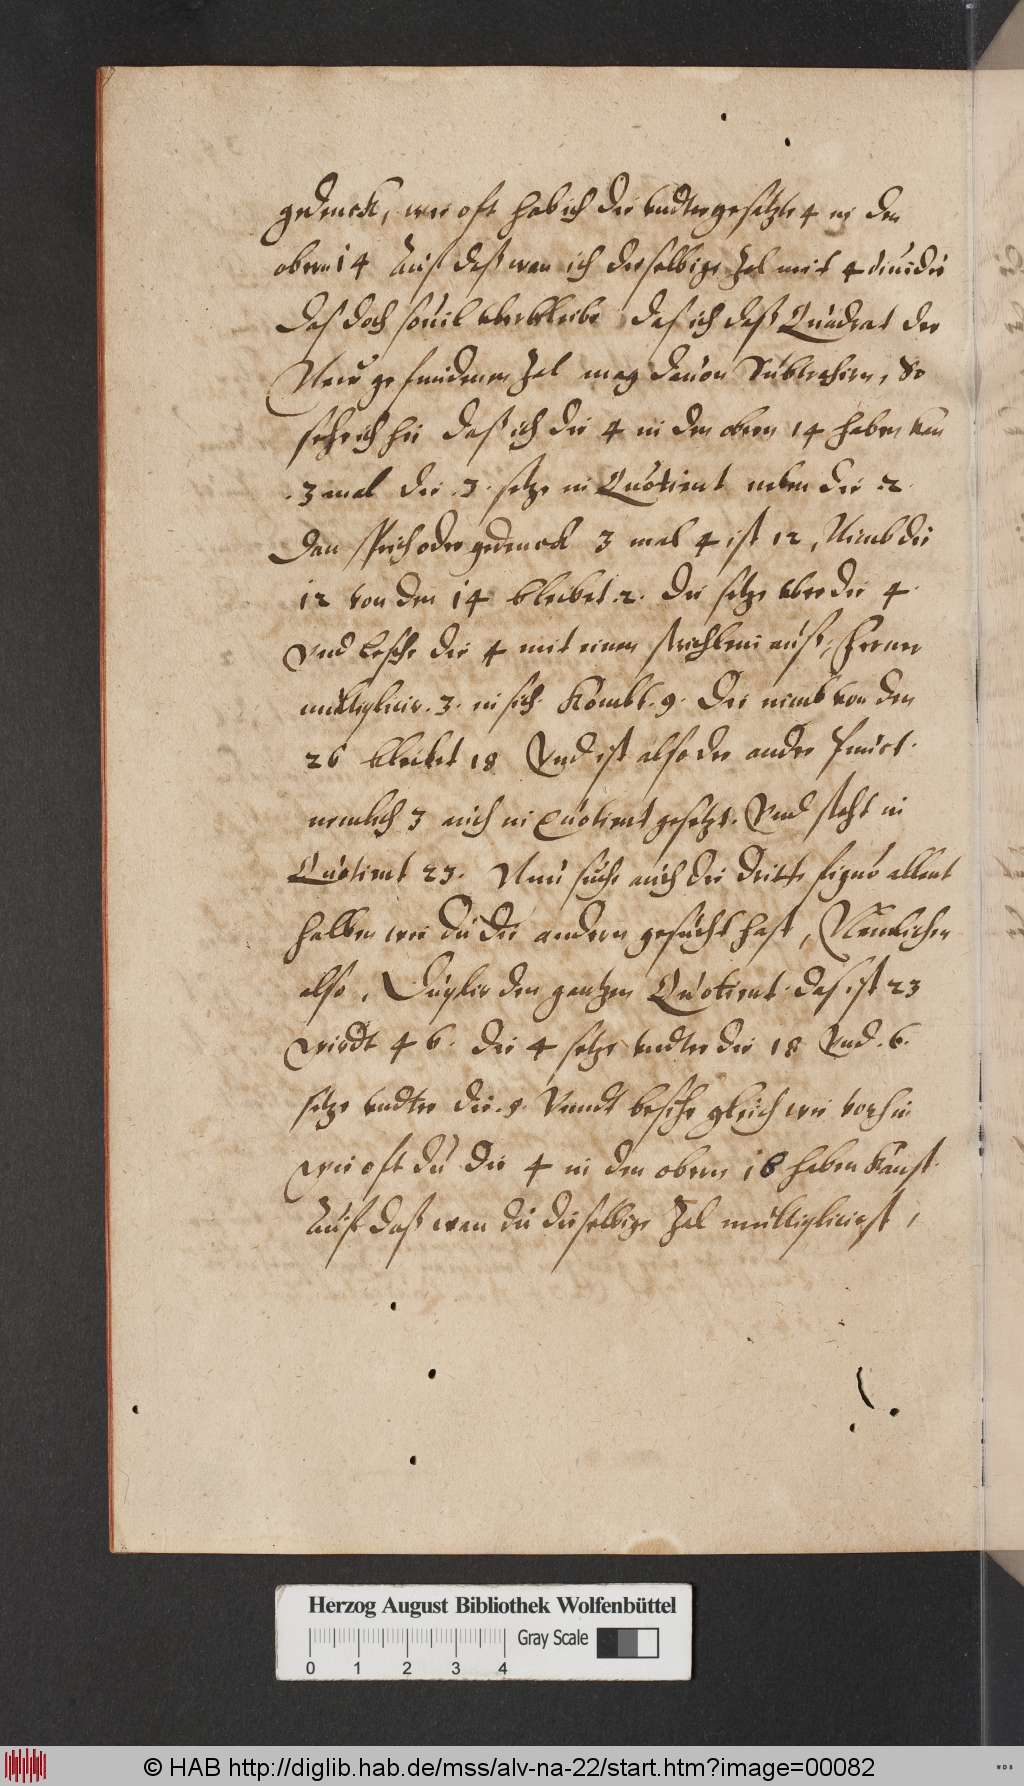 gedenck, wie oft hab ich die vndtergesetzte 4 in den
obern 14 Auf daß wan ich dieselbige Zal mit 4 diuidir
das doch souil vberbleibe das ich daß Quadrat der
New gefundenen Zal mag dauon Subtrahirn, So
sehe ich hie daß ich die 4 in den obern 14 haben kan
. 3 mal die . 3 . setze in Quotient neben die 2.
Dan sprich oder gedenck 3 mal 4 ist 12, Nimb die
12 von den 14 bleibet 2. die setze vber die 4.
Vnd lesche die 4 mit einem strichlein auß, Ferner
multiplicir . 3 . in sich. Kombt . 9 . Die nimb von den
26 bleibet 18 Vnd ist also der ander Punct.
nemlich 3 auch in Quotient gesetzt. Vnd steht in
Quotient 23. Nun suche auch die dritte figur allent
halben wie du die andern gesucht hast, Nemlichen
also, Duplir den gantzen Quotient. das ist 23
wirdt 46. die 4 setze vndter die 18 Vnd . 6.
setze vndter die . 8. Vnndt besihe gleich wie vorhin
wie oft du die 4 in den obern 18 haben kanst.
Auf daß wan du dieselbige Zal multiplicirst,
Herzog August Bibliothek Wolfenbüttel
Gray Scale
0 1 2 3 4
© HAB http://diglib.hab.de/mss/alv-na-22/start.htm?image=00082